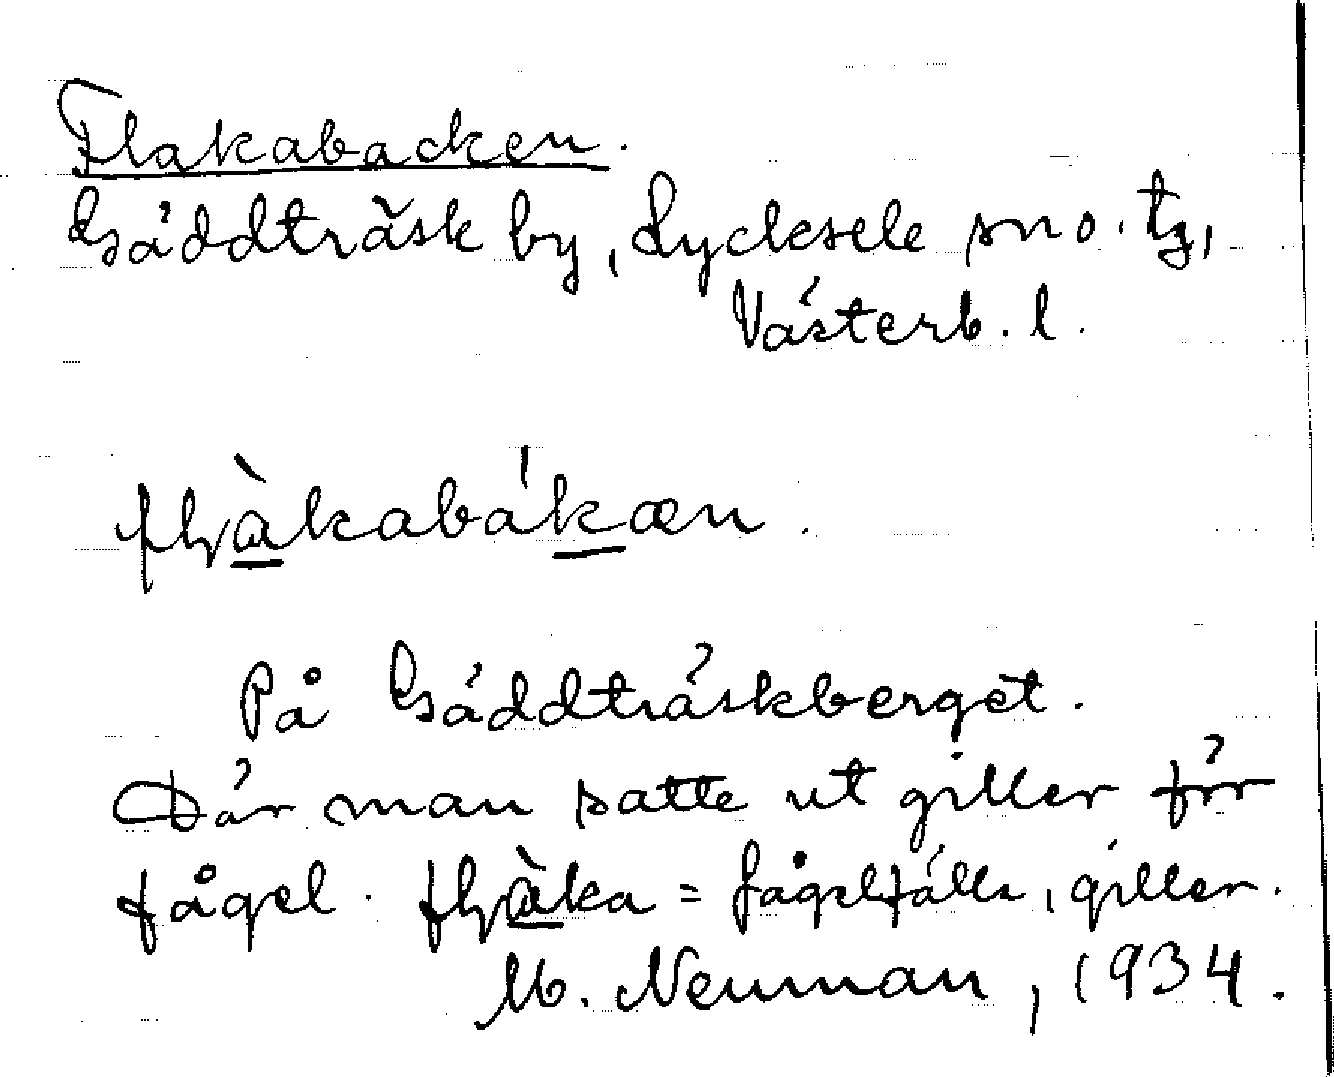 Flakabacken.
Gäddträsk by, Lycksele sn o. tg,
Västerb. l.
flàkabákæn.
På Gäddträskberget.
Där man satte ut giller för
fågel. flàka = fågelfälla, giller.
M. Neuman, 1934.